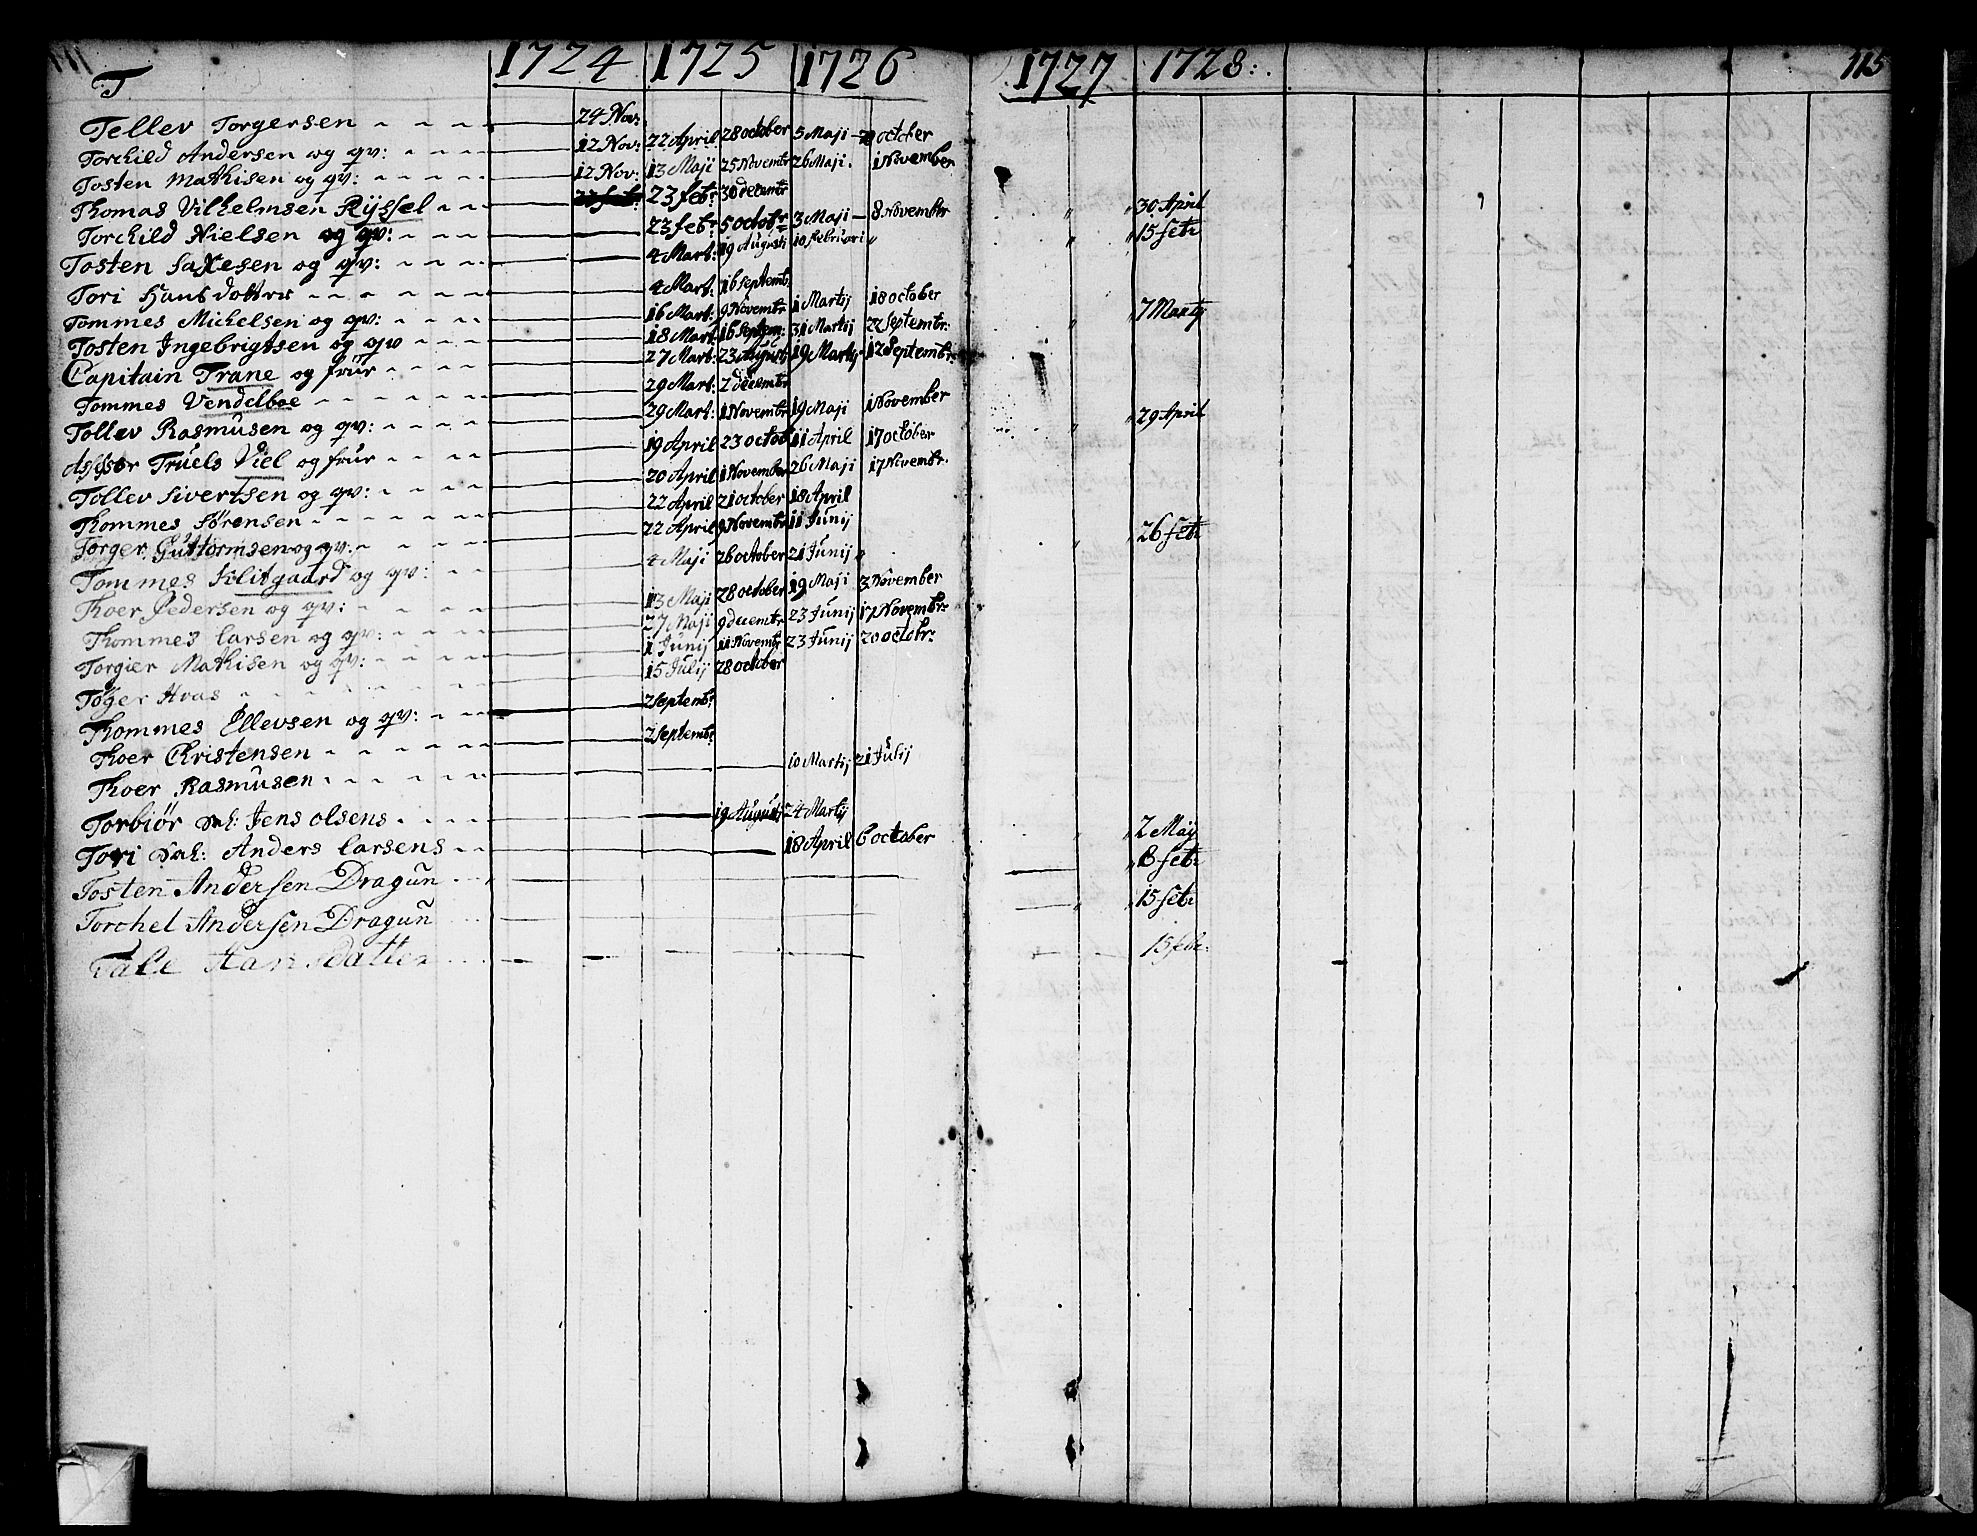 T 1724 1725 1726 1727 1728: 115
Tellev Torgersen 24 Nov:
Torchild Andersen og qv: 12 Nov: 22 April 28 october 5 Maji october
Tosten Mathisen og qv: 12 Nov: 13 Maji 25 Novembr 26 Maji. 1 November
Thomas Vilhelmsen Rÿssel 23 feb: 23 feb: 30 decembr 30 April
Torchild Nielsen og qv: 23 feb: 5 octobr 3 Maji 8 November 15 febr
Tosten Saxesen og qv: 4 Mart: 19 Augusti 10 februari
Tori Hansdotter 4 Mart: 16 Septemb:
Tommes Michelsen og qv: 16 Mart: 9 Novembr 1 Martij 18 october 7 Martij
Tosten Ingebrigtsen og qv 18 Mart: 16 Septem: 31 Martij 22 Septembr:
Capitain Trane og frür 27 Mart: 23 August 19 Martij 12 Septembr:
Tommes Vendelboe 29 Mart: 2 decembr
Tollev Rasmusen og qv: 29 Mart: 1 Novembr 19 Maji 1 November 29 April
Assessor Truels Viel og frür 19 April 23 octob 11 April 17 october
Tollev Sivertsen og qv: 20 April 1 November 26 Maji 17 Nivembr.
Thommes Sørensen 22 April 21 october 18 April
Torger Guttormsen og qv: 22 April 9 Novembr 11 Junij 26 febr
Tommes Klitgaard og qv: 4 Maji 26 october 21 Junij
Thoer Pedersen og qv: 13 Maji 28 october 19 Maji 3 November
Thommes Larsen og qv: 27 Maji 9 decembr 23 Junij 17 Novembr:
Torgier Mathisen og qv: 1 Junij 11 Novembr 23 Junij 20 octobr:
Tøger Hvas 15 Julij 28 october
Thommes Ellevsen og qv: 2 Septembr
Thoer Christensen 2 Septembr
Thoer Rasmusen 10 Martij 21 Julij
Torbiør Sal: Jens olsens 19 Augusti 24 Martij
Tori Sal: Anders Larsens 18 April 6 october 2 Maÿ
Tosten Andersen Dragun 8 febr
Torchel Andersen Dragun 15 febr
Tale Hansdatter 15 febr.